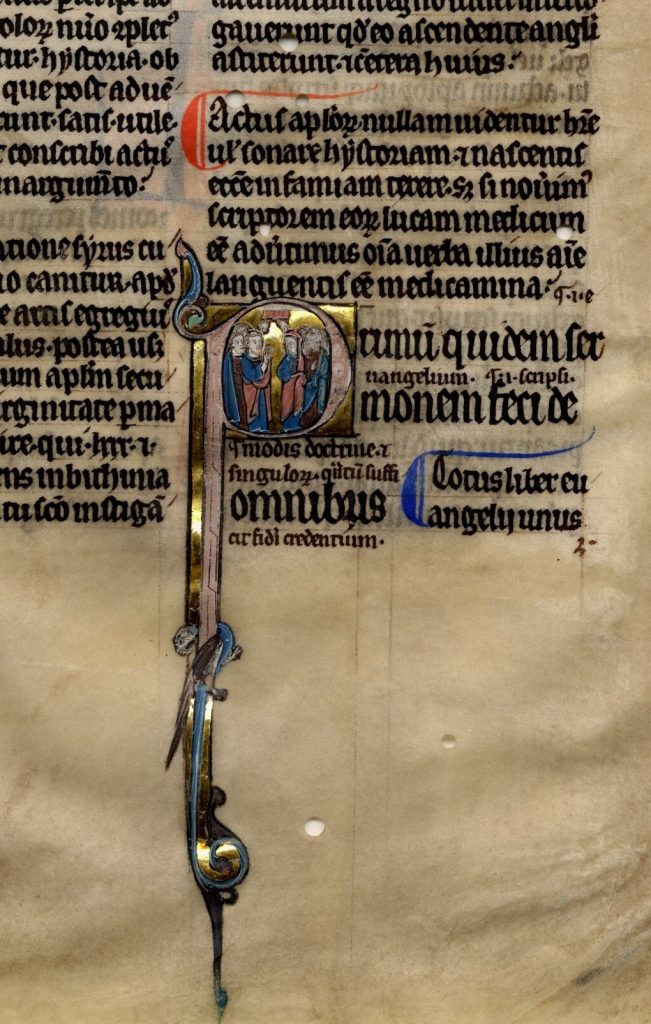 tur·hystoria·ob
que post aduē
cunt·satis·utile·
conscribi actū
nargum̅to·
atione syrus cu
o canitur·apđ
e artis egregiū
alus·postea usi
uum aplm̅ secu
irginitate ꝑma
ire·qui·
ens in bithinia
tu sc̅o instigā
gauerunt qd̅ eo ascendente angli
astiterunt·⁊ cetera huius·
Actus aplorꝝ nullam uidentur hr̅e
ul' sonare hystoriam·⁊ nascentis
ecc̅e infamiam texere·sꝫ si nouim⁹
scriptorem eorꝝ lucam medicum
ee̅ adu̅timus oi̅a uerba illius ai̅e
languentis ee̅ medicamina·
·i·e
Primū quidem ser
uangelium· ·i·scripsi·
monem feci de
modis doctrine·⁊
singulorꝝ·
omnibus
fidi credentium·
Totus liber eu
angelij unus